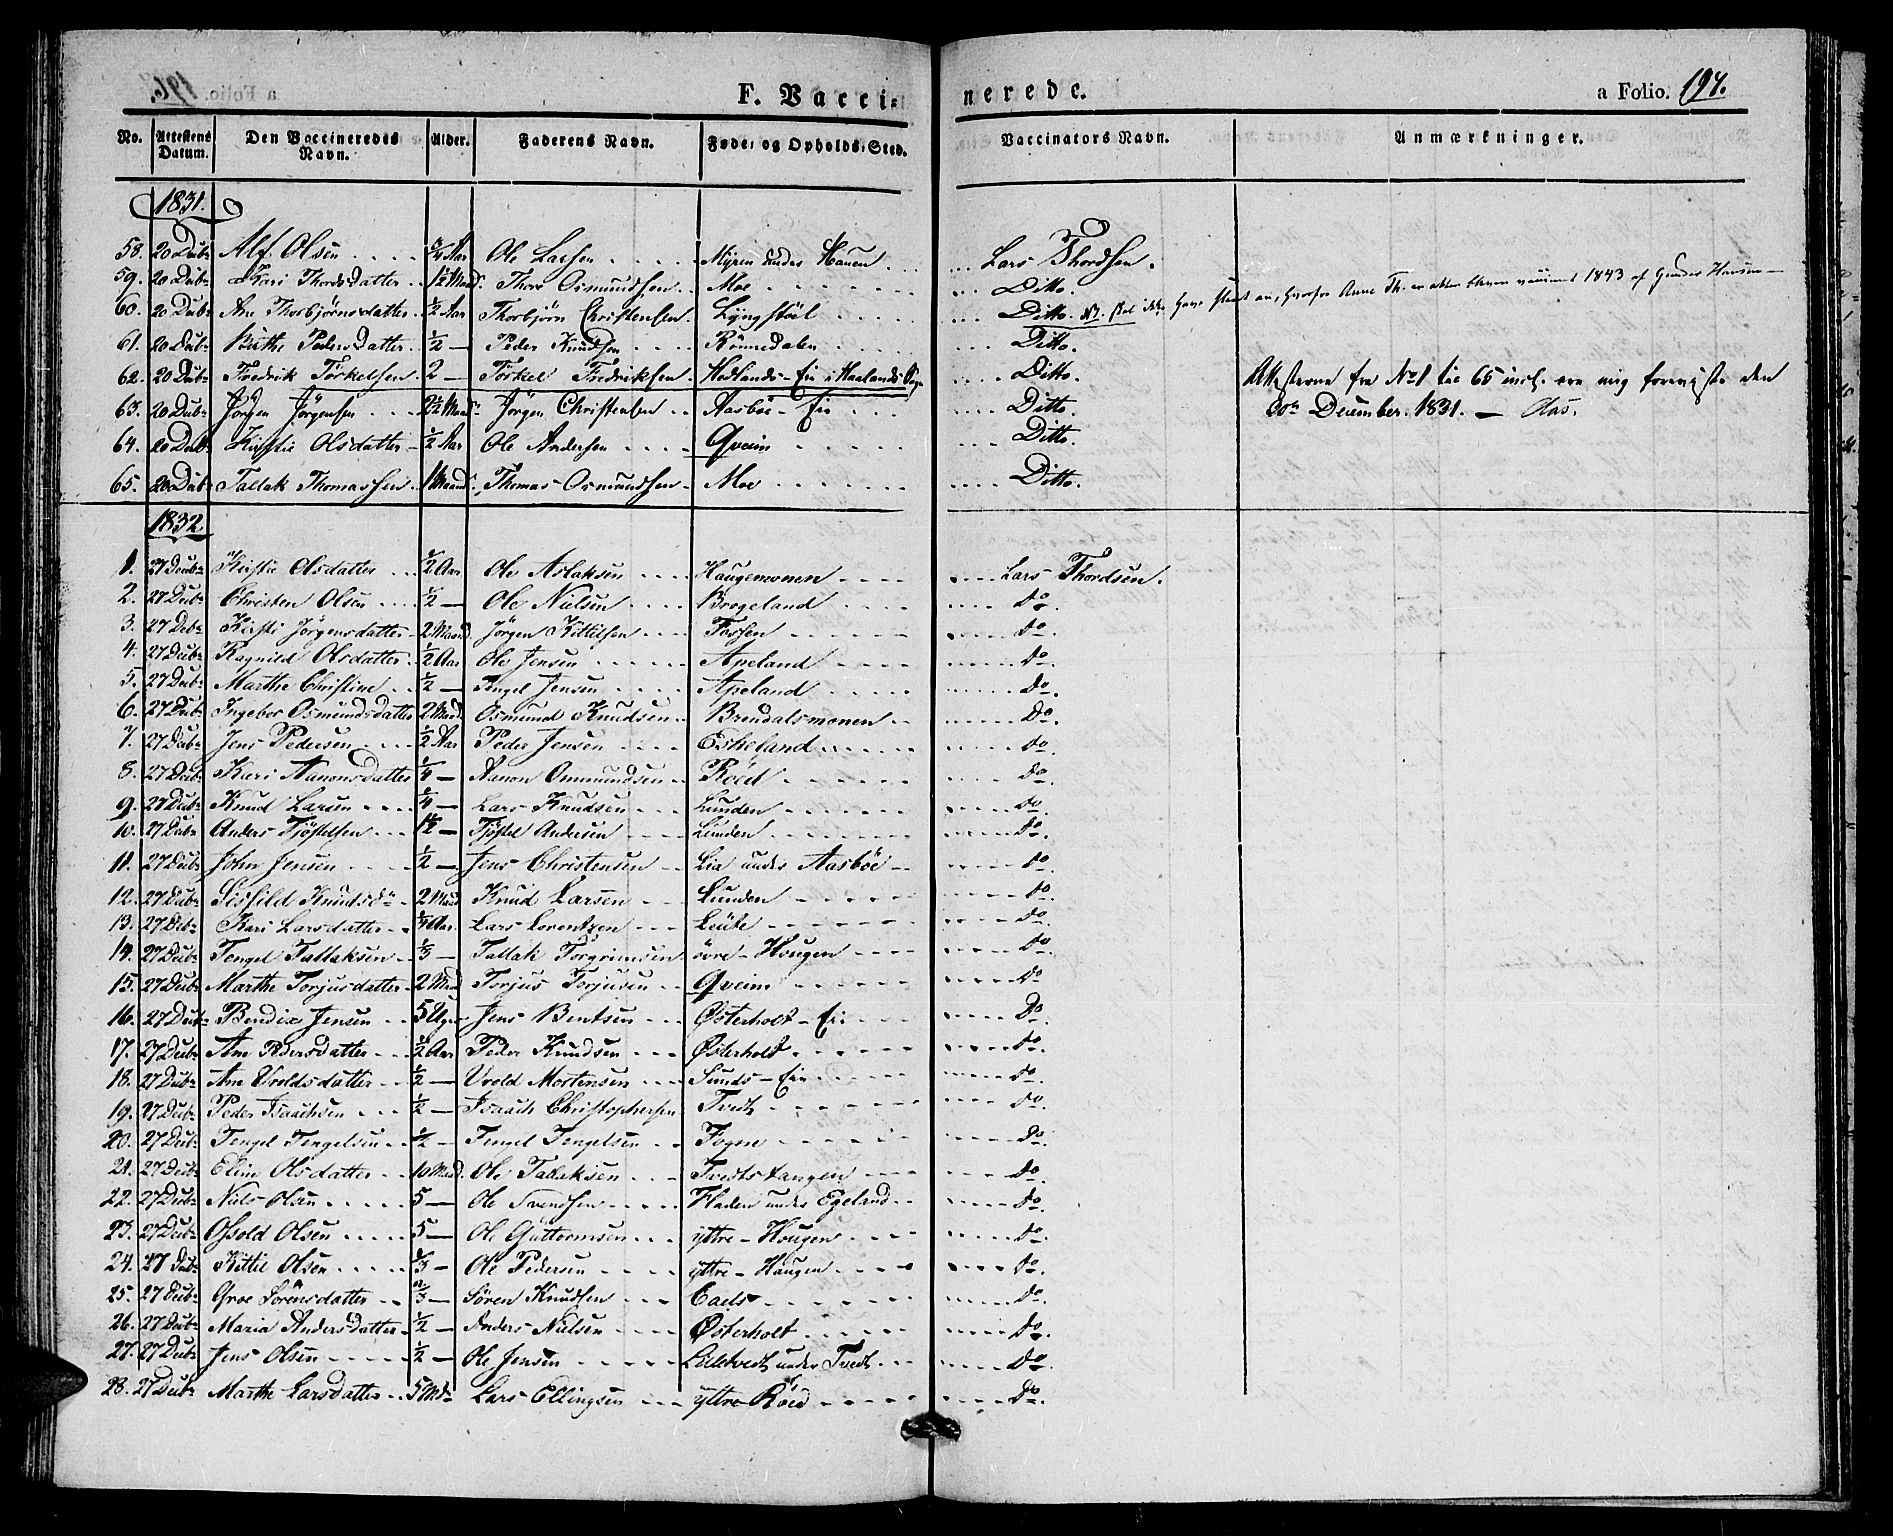 F. Vaccinerede. a Folio. 197.
No. Attestens Datum. Den Vaccineredes Navn. Alder. Faderens Navn. Føde- og Opholds-Sted. Vaccinators Navn. Anmærkninger.
1831.
58. 20 Dcbr Alf Olsen 3/4 Aar Ole Larsen Myren under Hauen Lars Thordsen.
59. 20 Dcbr Kari Thordsdatter Thore Osmundsen Moe Ditto.
60. 20 Dcbr Ane Thorbjörnsdatter 1/2 Aar Thorbjörn Christensen Lyngstöl Ditto. NB. skal ikke have slaaet an, hvorfor Anne Th. er atter bleven vaccineret 1843 af Gunder Hansen
61. 20 Dcbr Birthe Pedersdatter 1/2 — Peder Knudsen Rönnedalen Ditto.
62. 20 Dcbr Fredrik Törkelsen 2 — Törkel Fredriksen Hedlands-Eie i Haalands Sogn Ditto. Attesterne fra No 1 til 65 incl. ere mig foreviiste den
63. 20 Dcbr Jörgen Jörgensen 2 1/2 Maad Jörgen Christensen Aasböe-Eie Ditto. 30te December 1831. — Aas.
64. 20 Dcbr Kirstie Olsdatter 1/2 Aar Ole Andersen Qveim Ditto.
65. 20 Dcbr Tallak Thomassen Thomas Osmundsen Moe Ditto.
1832
1. 27 Decbr Kirstie Olsdatter 1/2 Aar Ole Aslaksen Haugemonen Lars Thordsen.
2. 27 Dcbr Christen Olsen 1/2 — Ole Nielsen Brogeland do.
3. 27 Dcbr Kirsti Jörgensdatter 2 Maand Jörgen Kittilsen Fossen do.
4. 27 Dcbr Ragnild Olsdatter 1/2 Aar Ole Jensen Apeland do.
5. 27 Dcbr Marthe Christine 1/2 — Tengel Jensen Apeland do.
6. 27 Dcbr Ingebor Osmundsdatter 2 Maad Osmund Knudsen Brendalsmonen Do.
7. 27 Dcbr Jens Pedersen 1/2 Aar Peder Jensen Eskeland do.
8. 27 Dcbr Kari Aanonsdatter 1/4 — Aanon Ommundsen Röed do.
9. 27 Dcbr Knud Larsen 1/4 — Lars Knudsen Lunden do.
10. 27 Dcbr Anders Tjöstelsen 1 1/2 — Tjöstel Andersen Lunden do.
11. 27 Dcbr John Jensen 1/2 — Jens Christensen Lia under Aasböe do.
12. 27 Dcbr Sissild Knudsdr 2 Maad Knud Larsen Lunden do.
13. 27 Dcbr Kari Larsdatter 3/4 Aar Lars Lorentzen Leite do.
14. 27 Dcbr Tengel Tallaksen 1/3 — Tallak Torgrimsen övre-Hougen do.
15. 27 Dcbr Marthe Torjusdatter 2 Mad Torjus Torjusen Qveim do
16. 27 Dcbr Bendix Jensen 5 Uger Jens Bentsen Østerholt-Eie Do
17. 27 Dcbr Ane Pedersdatter 1/2 Aar Peder Knudsen Østerholt do.
18. 27 Dcbr Ane Uvoldsdatter 1/2 — Uvold Mortensen Sunds-Eie do.
19. 27 Dcbr Peder Isaachsen 1/2 — Isaach Christophersen Tvedt do.
20. 27 Dcbr Tengel Tengelsen 1/2 — Tengel Tengelsen Fogne do.
21. 27 Dcbr Eline Olsdatter 10 Maad. Ole Tallaksen Tvedtstangen do.
22. 27 Dcbr Niels Olsen 5 — Ole Svendsen Fladen under Egeland do.
23. 27 Dcbr Osvold Olsen 5 — Ole Guttormsen yttre-Hougen do.
24. 27 Dcbr Kittil Olsen 1/3 — Ole Pedersen yttre-Haugen do.
25. 27 Dcbr Groe Sörensdatter 2/3 — Sören Knudsen do.
26. 27 Dcbr Maria Andersdatter 1/2 — Anders Nielsen Østerholt do.
27. 27 Dcbr Jens Olsen 1/2 — Ole Jensen Lilletvedt under Tvedt do.
28. 27 Dcbr Marthe Larsdatter 5 Mdr Lars Ellingsen yttre-Röed Do.